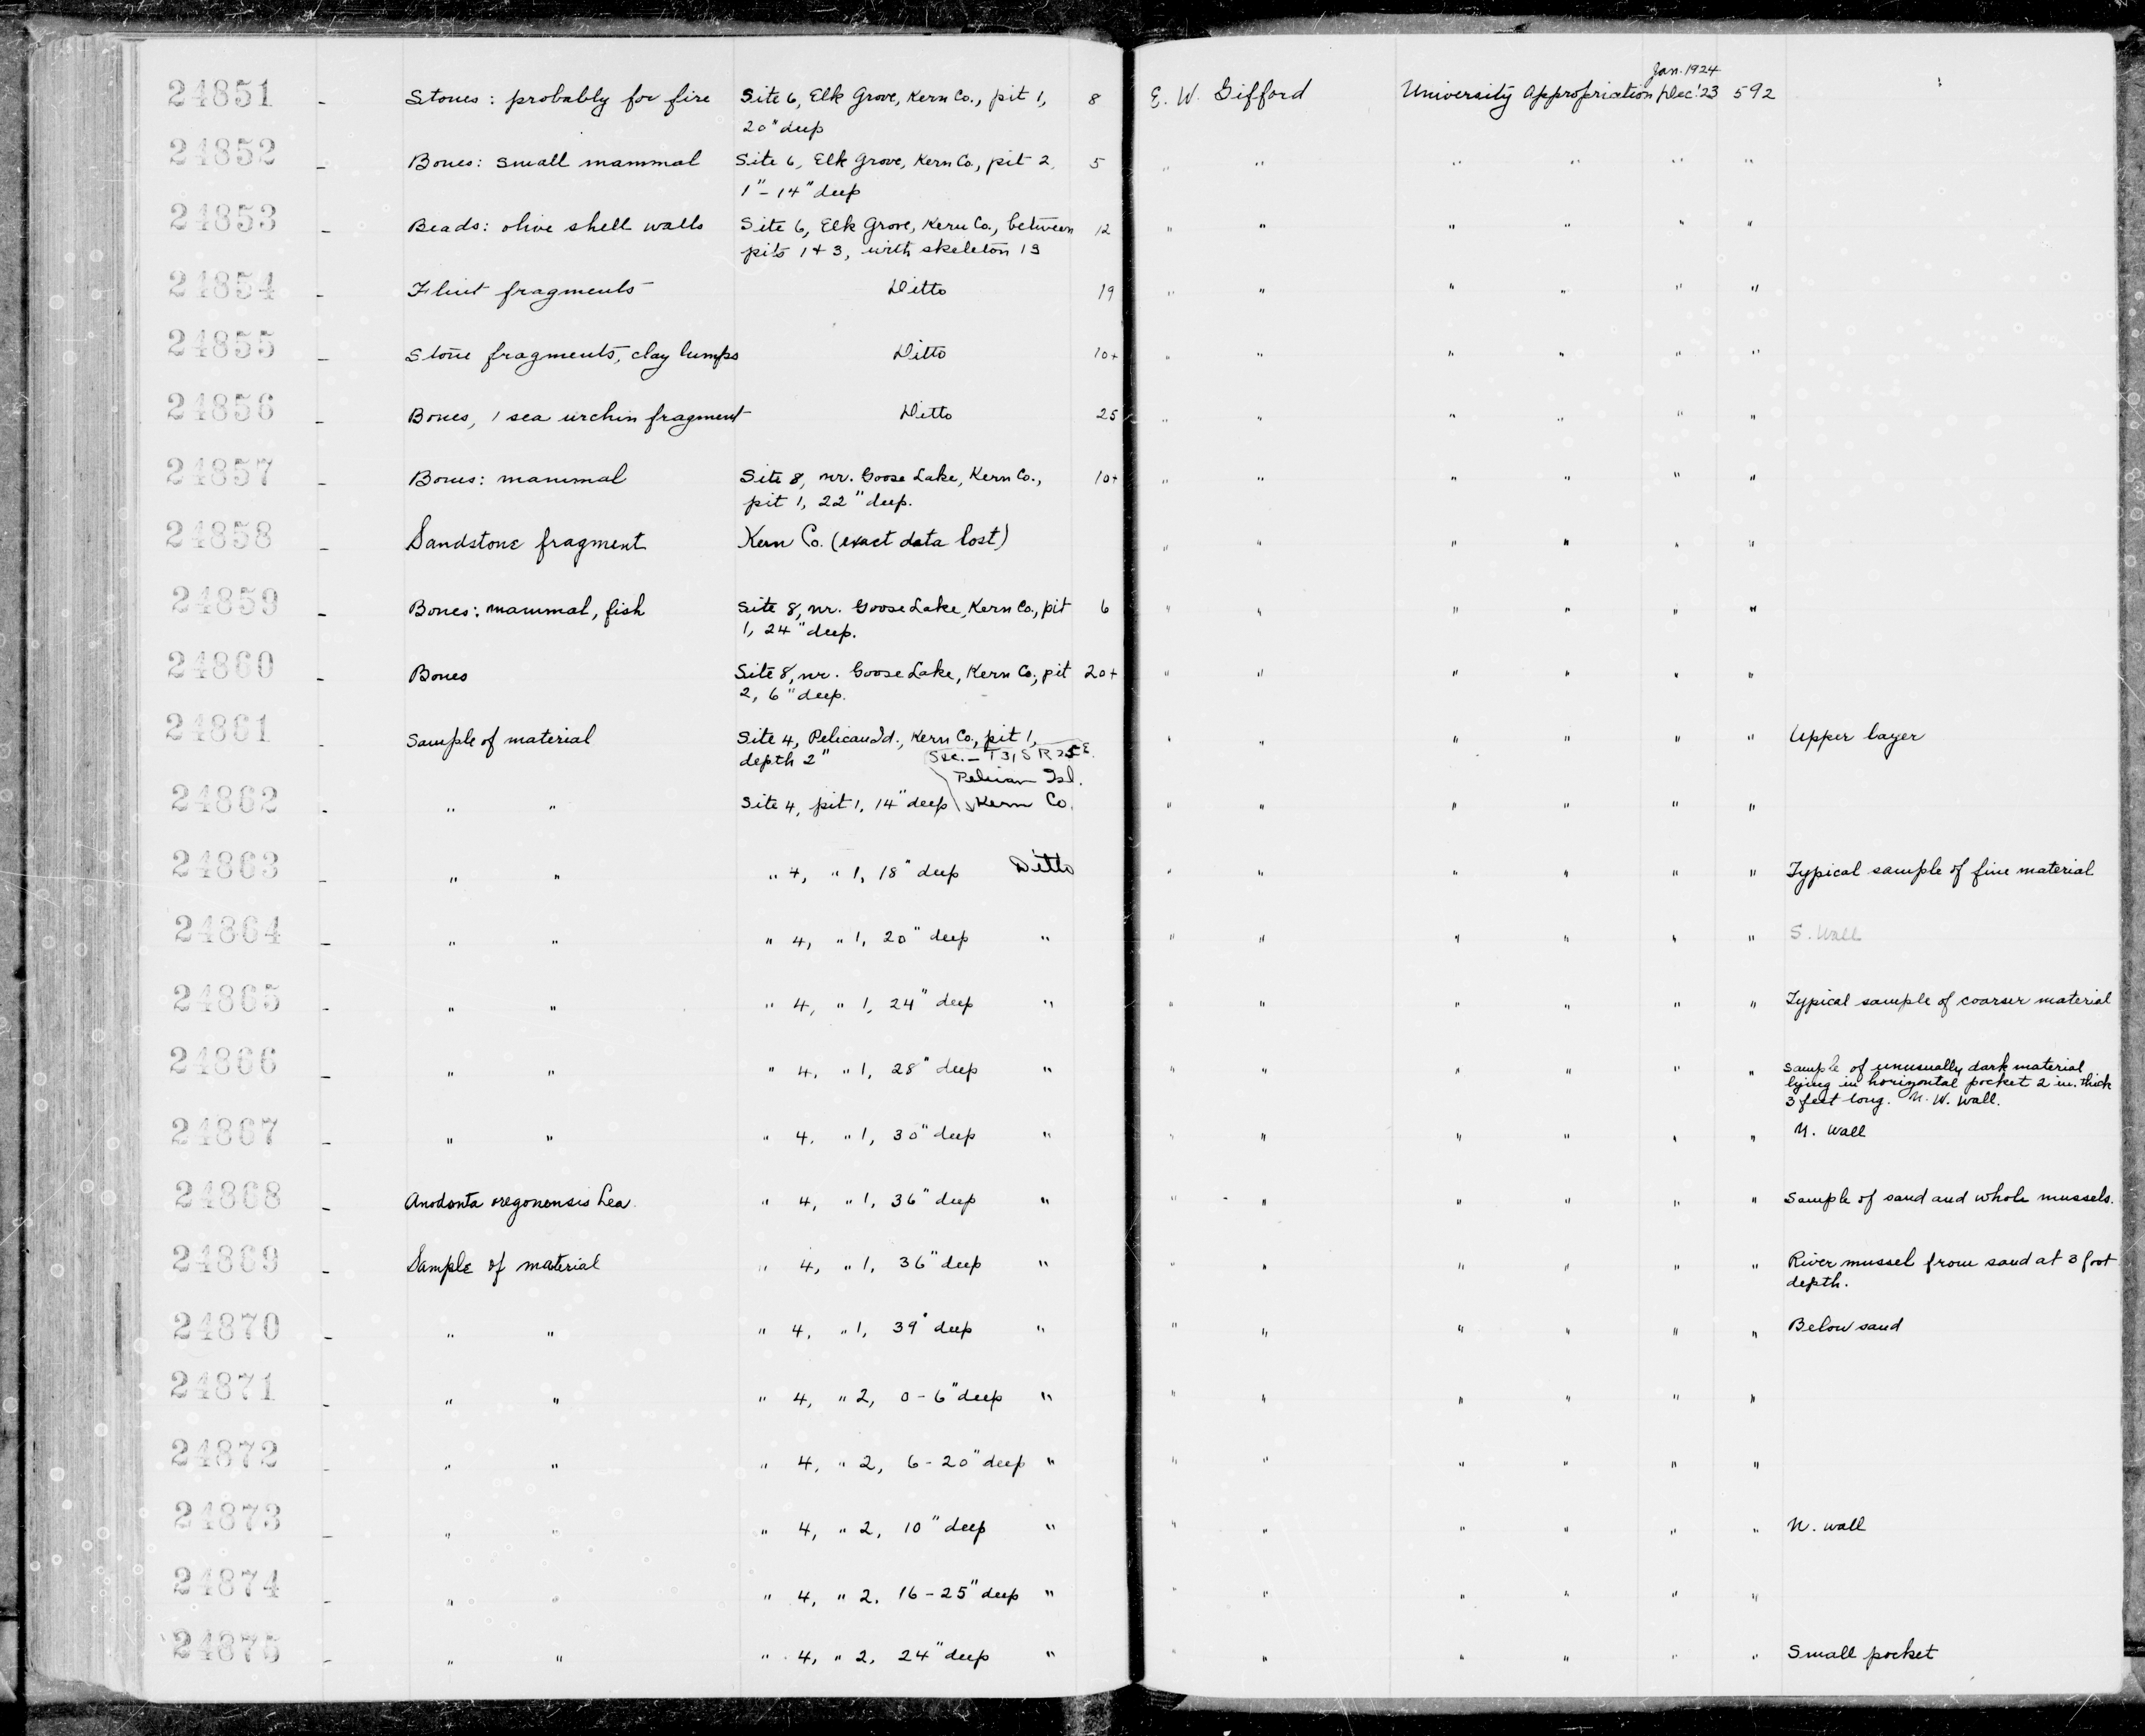 Jan. 1924
24851 - Stones: probably for fire Site 6, Elk Grove, Kern Co., pit 1, 8 E. W. Gifford University Appropriation Dec. '23 592
20" deep
24852 - Bones: small mammal Site 6, Elk Grove, Kern Co., pit 2, 5 " " " " " "
1"-14" deep
24853 - Beads: olive shell walls Site 6, Elk Grove, Kern Co., between 12 " " " " " "
pits 1 + 3, with skeleton 13
24854 - Flint fragments Ditto 19 " " " " " "
24855 - Stone fragments, clay lumps Ditto 10+ " " " " " "
24856 - Bones, 1 sea urchin fragment Ditto 25 " " " " " "
24857 - Bones: mammal Site 8, nr. Goose Lake, Kern Co., 10+ " " " " " "
pit 1, 22" deep.
24858 - Sandstone fragment Kern Co. (exact data lost) " " " " " "
24859 - Bones: mammal, fish Site 8, nr. Goose Lake, Kern Co., pit 6 " " " " " "
1, 24" deep.
24860 - Bones Site 8, nr. Goose Lake, Kern Co., pit 20+ " " " " " "
2, 6" deep.
24861 - Sample of material Site 4, Pelican Id., Kern Co., pit 1, " " " " " " Upper layer
depth 2" Sec. - T31S R25E.
Pelican Isl.
24862 - " " Site 4, pit 1, 14" deep Kern Co. " " " " " "
24863 - " " " 4, " 1, 18" deep Ditto " " " " " " Typical sample of fine material
24864 - " " " 4, " 1, 20" deep " " " " " " " S. Wall
24865 - " " " 4, " 1, 24" deep " " " " " " " Typical sample of coarser material
24866 - " " " 4, " 1, 28" deep " " " " " " " Sample of unusually dark material
lying in horizontal pocket 2 in. thick
3 feet long. N. W. Wall.
24867 - " " " 4, " 1, 30" deep " " " " " " " N. Wall
24868 - Anodonta oregonensis Lea " 4, " 1, 36" deep " " " " " " " Sample of sand and whole mussels.
24869 - Sample of material " 4, " 1, 36" deep " " " " " " " River mussel from sand at 3 foot
depth.
24870 - " " " 4, " 1, 39" deep " " " " " " " Below sand
24871 - " " " 4, " 2, 0-6" deep " " " " " " "
24872 - " " " 4, " 2, 6-20" deep " " " " " " "
24873 - " " " 4, " 2, 10" deep " " " " " " " N. wall
24874 - " " " 4, " 2, 16-25" deep " " " " " " "
24875 - " " " 4, " 2, 24" deep " " " " " " " Small pocket